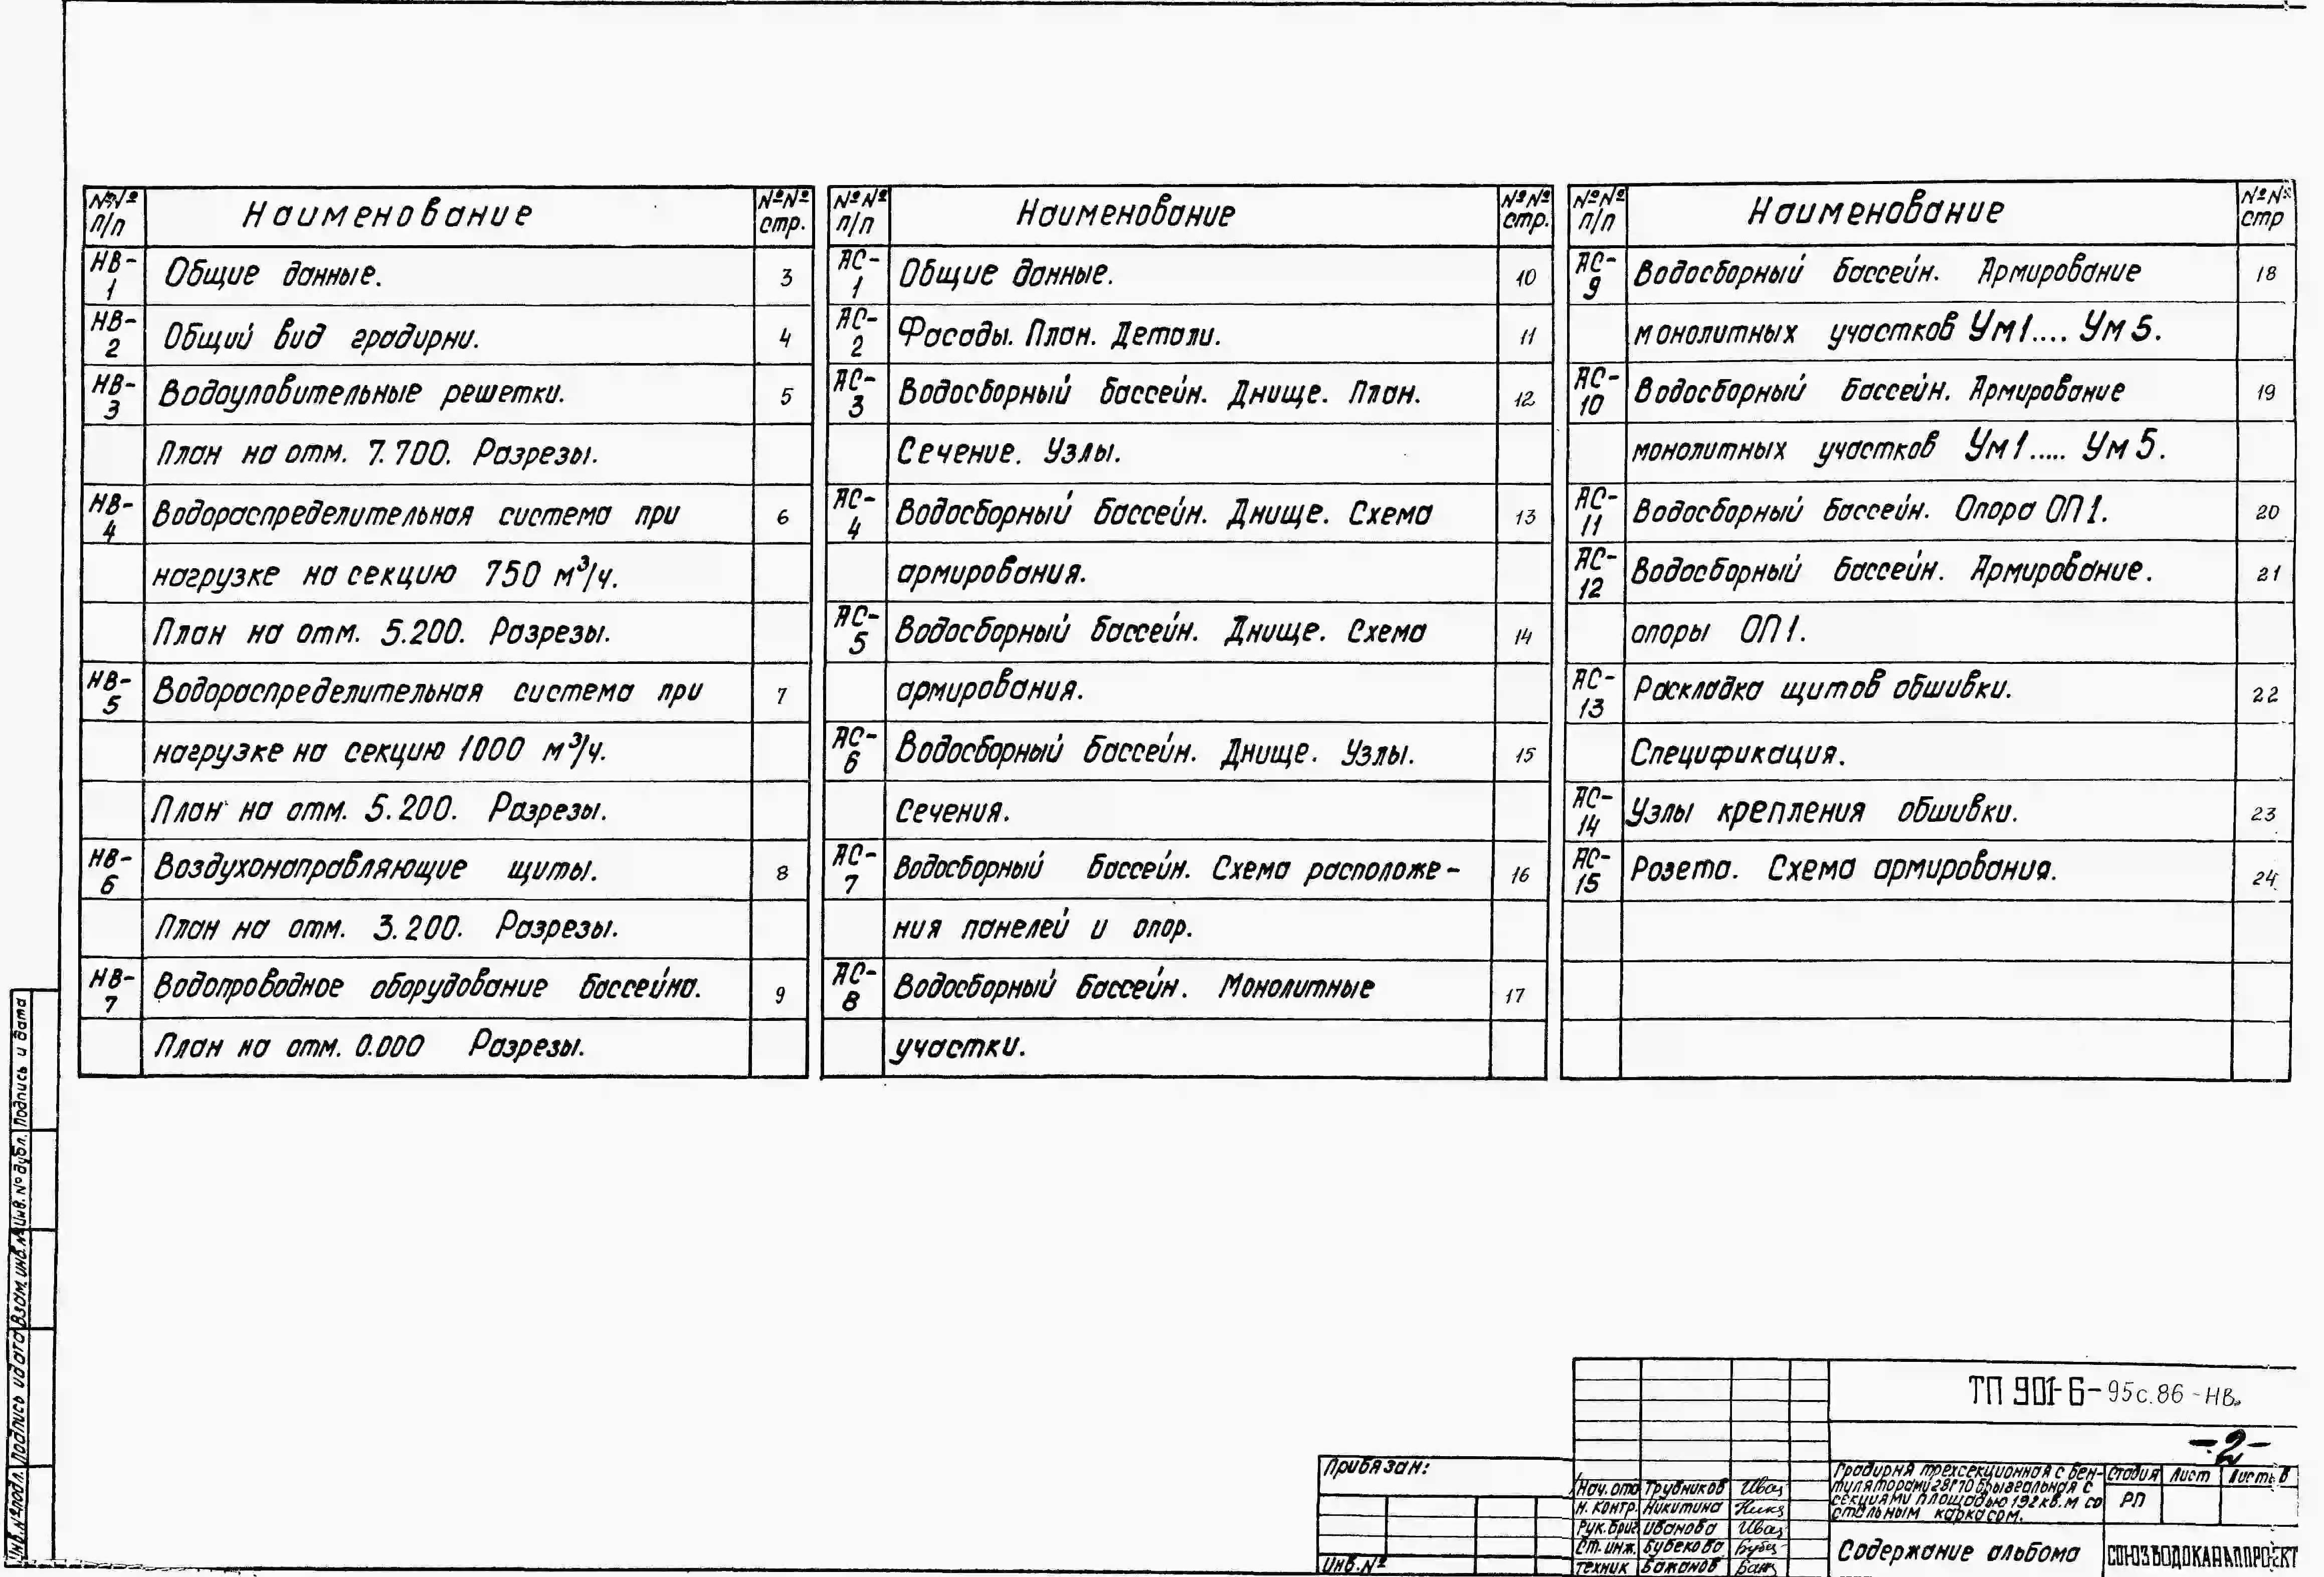 №№ п/п Наименование №№ стр.
НВ-1 Общие данные. 3
НВ-2 Общий вид градирни. 4
НВ-3 Водоуловительные решетки. 5
План на отм. 7.700. Разрезы.
НВ-4 Водораспределительная система при 6
нагрузке на секцию 750 м³/ч.
План на отм. 5.200. Разрезы.
НВ-5 Водораспределительная система при 7
нагрузке на секцию 1000 м³/ч.
План на отм. 5.200. Разрезы.
НВ-6 Воздухонаправляющие щиты. 8
План на отм. 3.200. Разрезы.
НВ-7 Водопроводное оборудование бассейна. 9
План на отм. 0.000 Разрезы.
№№ п/п Наименование №№ стр.
АС-1 Общие данные. 10
АС-2 Фасады. План. Детали. 11
АС-3 Водосборный бассейн. Днище. План. 12
Сечение. Узлы.
АС-4 Водосборный бассейн. Днище. Схема 13
армирования.
АС-5 Водосборный бассейн. Днище. Схема 14
армирования.
АС-6 Водосборный бассейн. Днище. Узлы. 15
Сечения.
АС-7 Водосборный бассейн. Схема расположе- 16
ния панелей и опор.
АС-8 Водосборный бассейн. Монолитные 17
участки.
№№ п/п Наименование №№ стр
АС-9 Водосборный бассейн. Армирование 18
монолитных участков Ум1.... Ум5.
АС-10 Водосборный бассейн. Армирование 19
монолитных участков Ум1..... Ум5.
АС-11 Водосборный бассейн. Опора ОП1. 20
АС-12 Водосборный бассейн. Армирование. 21
опоры ОП1.
АС-13 Раскладка щитов обшивки. 22
Спецификация.
АС-14 Узлы крепления обшивки. 23
АС-15 Розета. Схема армирования. 24
Инв.№подл. Подпись и дата Взам.инв.№ Инв.№дубл. Подпись и дата
Привязан:
Инв.№
ТП 901-6-95с.86-НВ
-2-
Нач.отд Трубников Ива
Н.контр. Никитина Ник
Рук.бриг Иванова Ива
Ст.инж. Бубекова Бубе
техник Бажанов Баж
Градирня трехсекционная с вен-
тиляторами 2ВГ70 брызгальная с
секциями площадью 192кв.м со
стальным каркасом.
Стадия Лист Листов
РП
Содержание альбома
СОЮЗВОДОКАНАЛПРОЕКТ